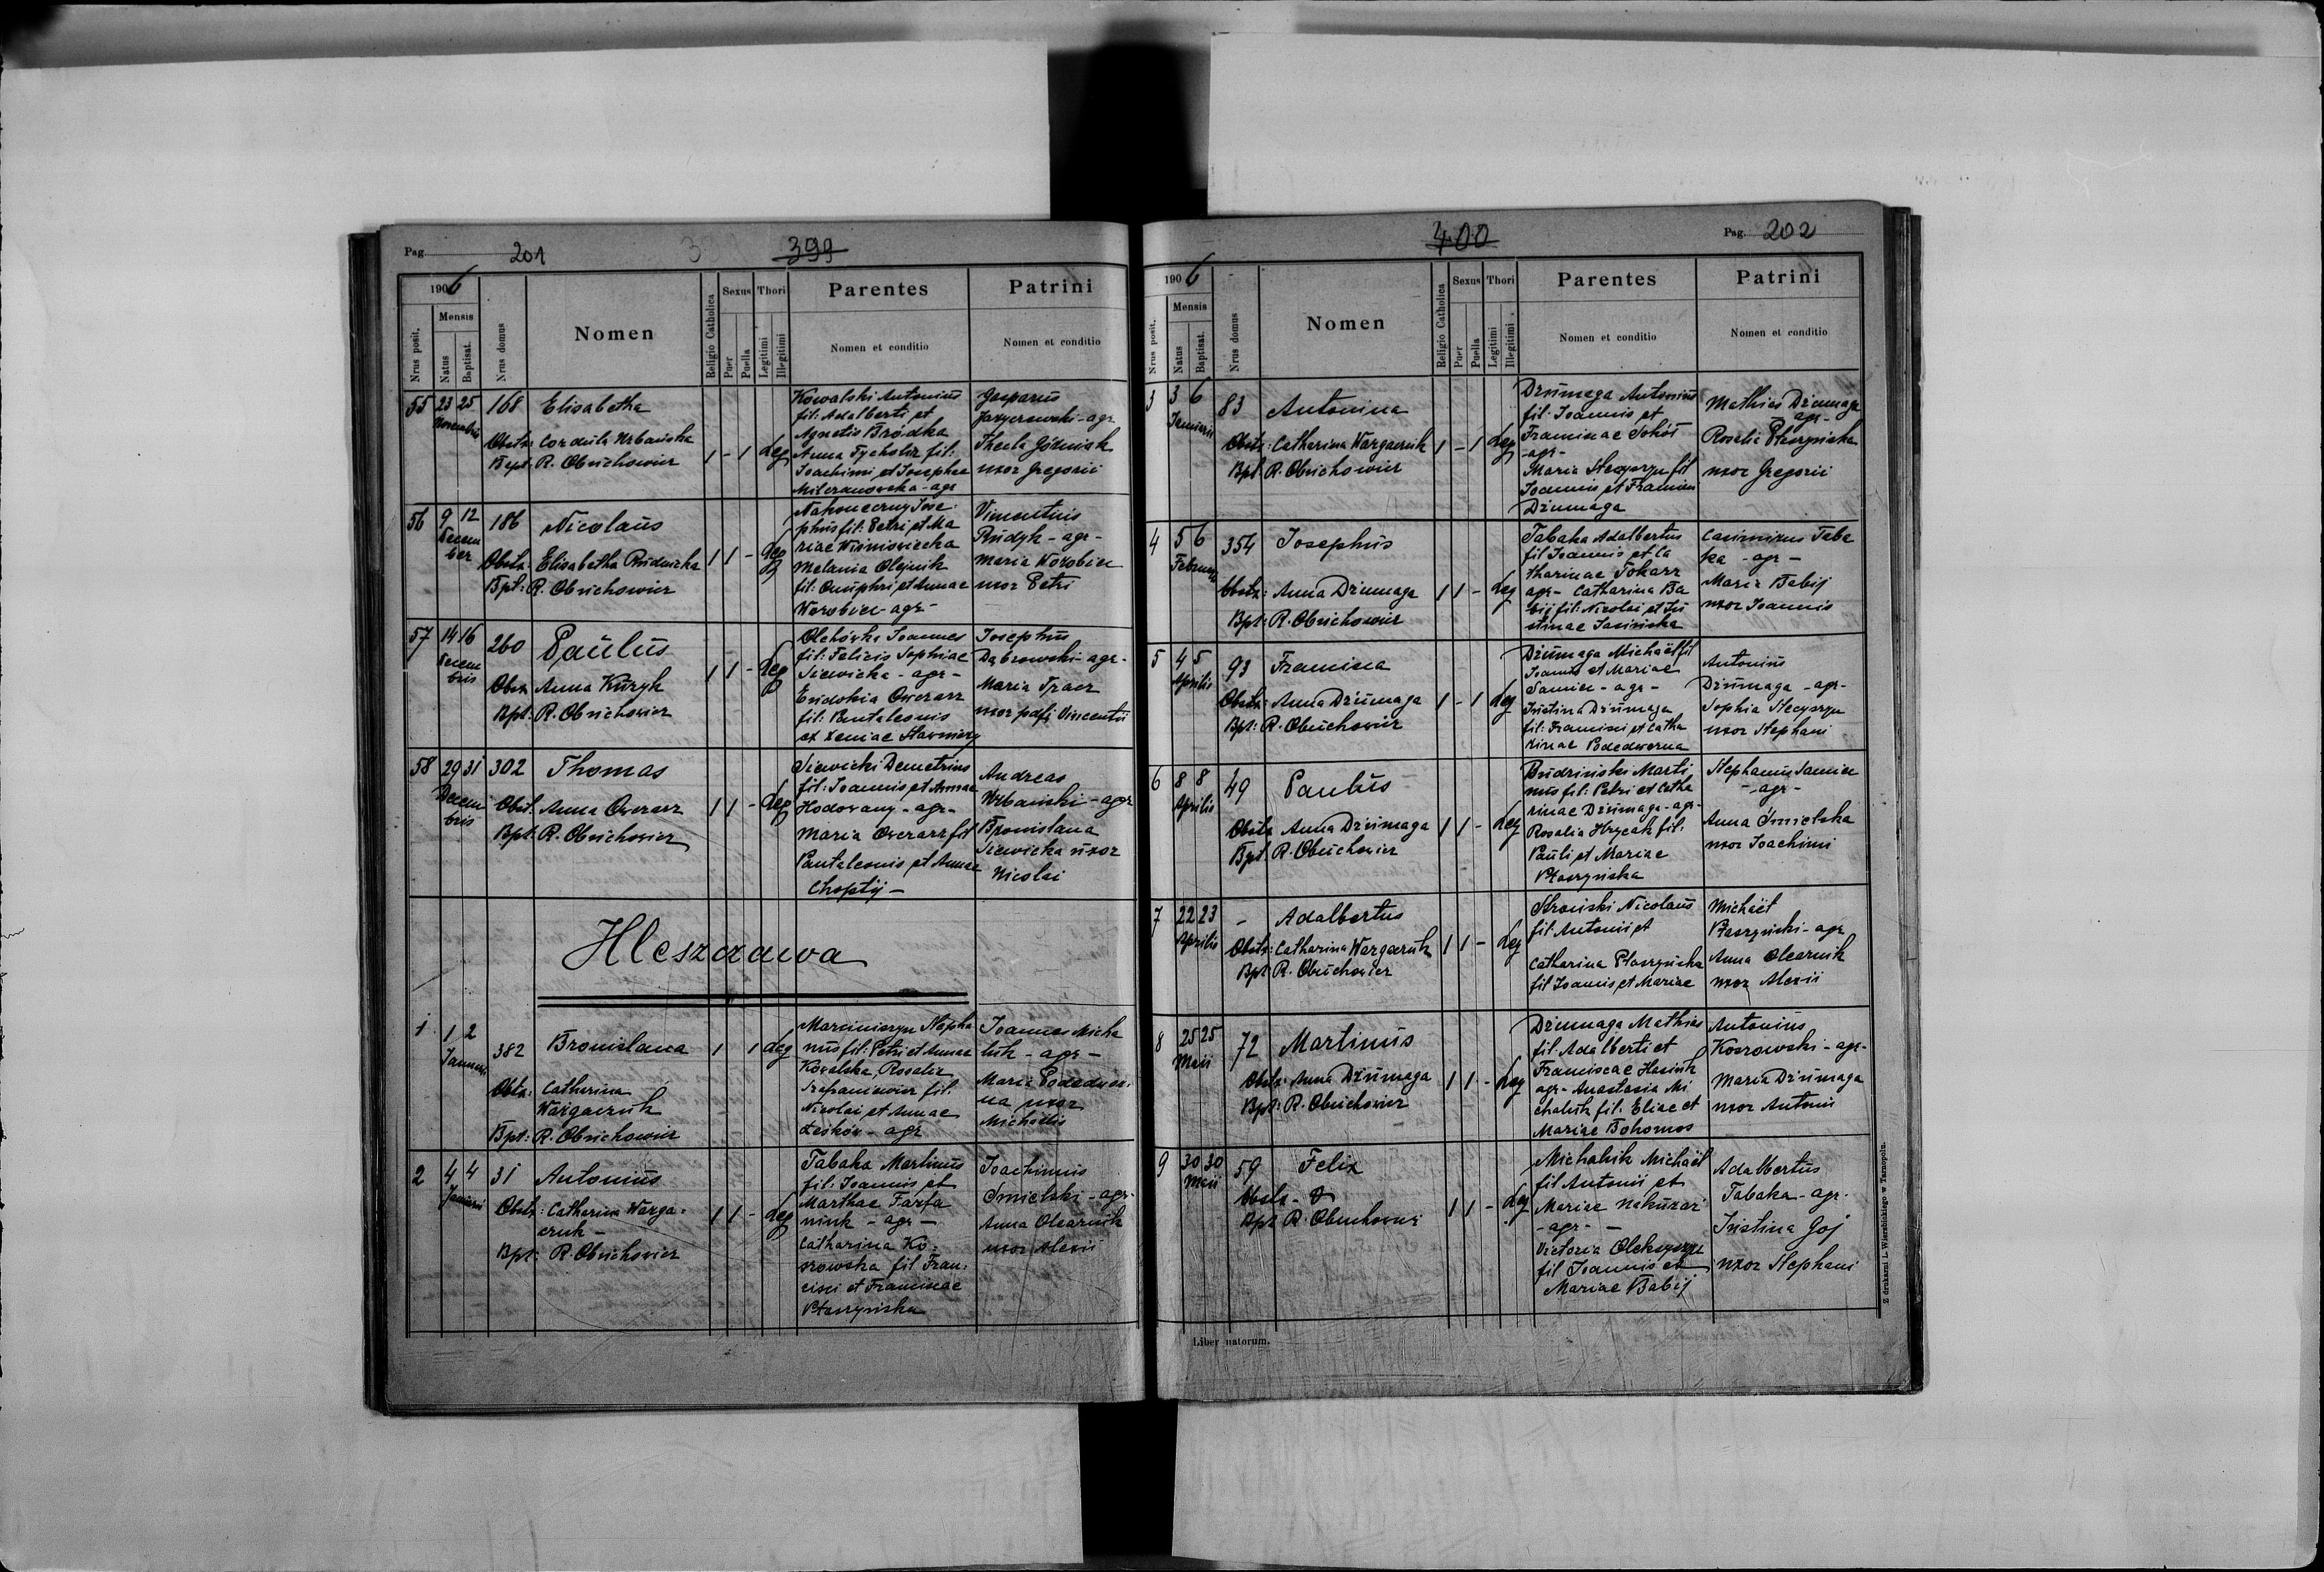 Pag. 201 399
1906
Nrus posit. Mensis Natus Baptisat. Nrus domus Nomen Religio Catholica Sexus Puer Puella Thori Legitimi Illegitimi Parentes Nomen et conditio Patrini Nomen et conditio
55 23 25 Novembris 168 Elisabetha
Obstx Cordula Urbańska
Bapt. R. Obuchowicz
1 - 1 Leg
Kowalski Antonius
fil: Adalberti et
Agnetis Bródka
Anna
Joachimi et Josephae
agr
Gasparus
agr
Thecla Górniak
uxor Gregorii
56 9 12 Decem
ber
186 Nicolaus
Obstx. Elisabetha Rudnicka
Bpt: R. Obuchowicz
1 1 - Leg
Nakoneczny Jose
phus fil: Petri et Ma
riae Wiśniowiecka
Melania Olejnik
fil: Onuphri et Annae
Worobiec - agr -
Vincentius
Rudyk - agr -
Maria Worobiec
uxor Petri
57 14 16 Decem
bris
260 Paulus
Obstx Anna Kuzyk
Bpt: R. Obuchowicz
1 1 - Leg
Olchówka Joannes
fil: Felicis Sophiae
Siewicka - agr -
Eudokia Owerarz
fil: Pantaleonis
et Xeniae
Josephus
Dąbrowski - agr -
Maria Tracz
uxor Vincentii
58 29 31 Decem
bris
302 Thomas
Obst. Anna Owerarz
Bpt: R. Obuchowicz
1 1 - Leg
Siewicki Demetrius
fil: Joannis et Annae
Hodovany - agr -
Maria Owerarz fil
Pantaleonis et Annae
Choptij -
Andreas
Urbański - agr
Bronislava
Siewicka uxor
Nicolai
Hleszczawa
1 1 2 Januarii
382 Bronislava
Obstx: Catharina
Wargaeruk
Bpt: R. Obuchowicz
1 1 Leg
Marciniszyn Stepha
nus fil: Petri et Annae
Kowalska, Rosalia
fil.
Nicolai et Annae
Leśków - agr
Joannes Micha
luk - agr -
Maria Podedwor
na uxor
Michaëlis
2 4 4 Januarii 31 Antonius
Obstx: Catharina Warga=
eruk -
Bpt: R. Obuchowicz
1 1 - Leg
Tabaka Martinus
fil: Joannis et
Marthae Farfa
niuk - agr -
Catharina Ko=
srowska fil Fran=
cisci et Franciscae
Ptaszyńska
Joachimus
Śmielski - agr -
Anna Olearnik
uxor Alexii
Pag. 202 400
1906
Nrus posit. Mensis Natus Baptisat. Nrus domus Nomen Religio Catholica Sexus Puer Puella Thori Legitimi Illegitimi Parentes Nomen et conditio Patrini Nomen et conditio
3 3 6 Januarii 83 Antonina
Obstx: Catharina Wargaeruk
Bpt R. Obuchowicz
1 - 1 Leg
Dziumaga Antonius
fil: Joannis et
Franciscae Sokół
- agr -
Maria Stecyszyn fil
Joannis et
Dziumaga
Mathias Dziumaga
agr -
Rosalia Ptaszyńska
uxor Gregorii
4 5 6 Februarii 354 Josephus
Obstx: Anna Dziumaga
Bpt: R. Obuchowicz
1 1 - Leg
Tabaka Adalbertus
fil Joannis et Ca
tharinae Tokarz
agr - Catharina Ba
bij fil: Nicolai et Ju
stinae Jasińska
Casimirus Taba
ka - agr -
Maria Babij
uxor Joannis
5 4 5 Aprilis 93 Francisca
Obstx: Anna Dziumaga
Bpt: R. Obuchowicz
1 - 1 Leg
Dziumaga Michaël fil
Joannis et Mariae
Samiec - agr -
Justina Dziumaga
fil: Francisci et Catha
rinae Podedworna
Antonius
Dziumaga - agr -
Sophia Stecyszyn
uxor Stephani
6 8 8 Aprilis 49 Paulus
Obstx Anna Dziumaga
Bpt R. Obuchowicz
1 1 - Leg
Budziński Marti
nus fil: Petri et Catha
rinae Dziumaga - agr -
Rosalia Hrycak fil:
Pauli et Mariae
Ptaszyńska
Stephanus Samiec
- agr -
Anna Śmielska
uxor Joachimi
7 22 23 Aprilis - Adalbertus
Obstx: Catharina Wargaeruk
Bpt R. Obuchowicz
1 1 - Leg
Stroński Nicolaus
fil Antonii et
Catharina Ptaszyńska
fil Joannis et Mariae
Michaël
Ptaszyński - agr
Anna Olearnik
uxor Alexii
8 25 25 Maii 72 Martinus
Obstx: Anna Dziumaga
Bpt: R. Obuchowicz
1 1 - Leg
Dziumaga Mathias
fil: Adalberti et
Franciscae Hasiuk
agr - Anastasia Mi
chaluk fil: Eliae et
Mariae Bohomos
Antonius
Kosrowski - agr -
Maria Dziumaga
uxor Antonii
9 30 30 Maii 59 Felix
Obstx -
Bpt R. Obuchowicz
1 1 - Leg
Michaluk Michaël
fil Antonii et
Mariae
- agr -
Victoria Oleksyszyn
fil Joannis et
Mariae Babij
Adalbertus
Tabaka - agr -
Justina Goj
uxor Stephani
Liber natorum.
Z drukarni L. Wierzbickiego w Tarnopolu.